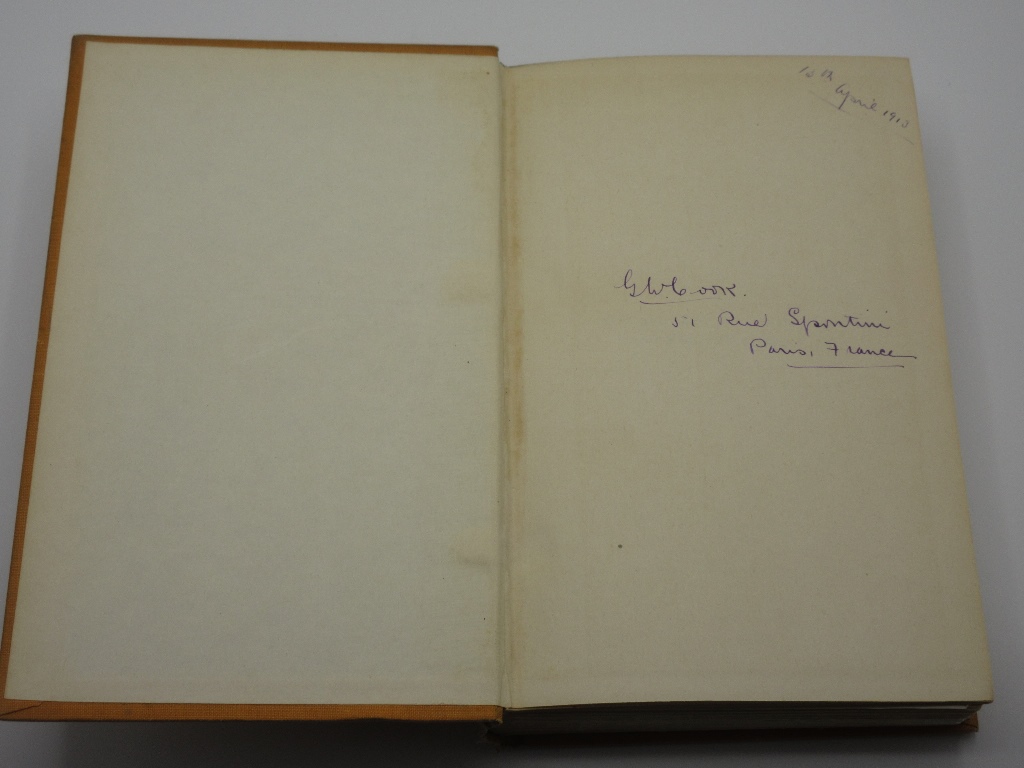 April 1913
G.W. Cook.
51 Rue Spontini
Paris, France